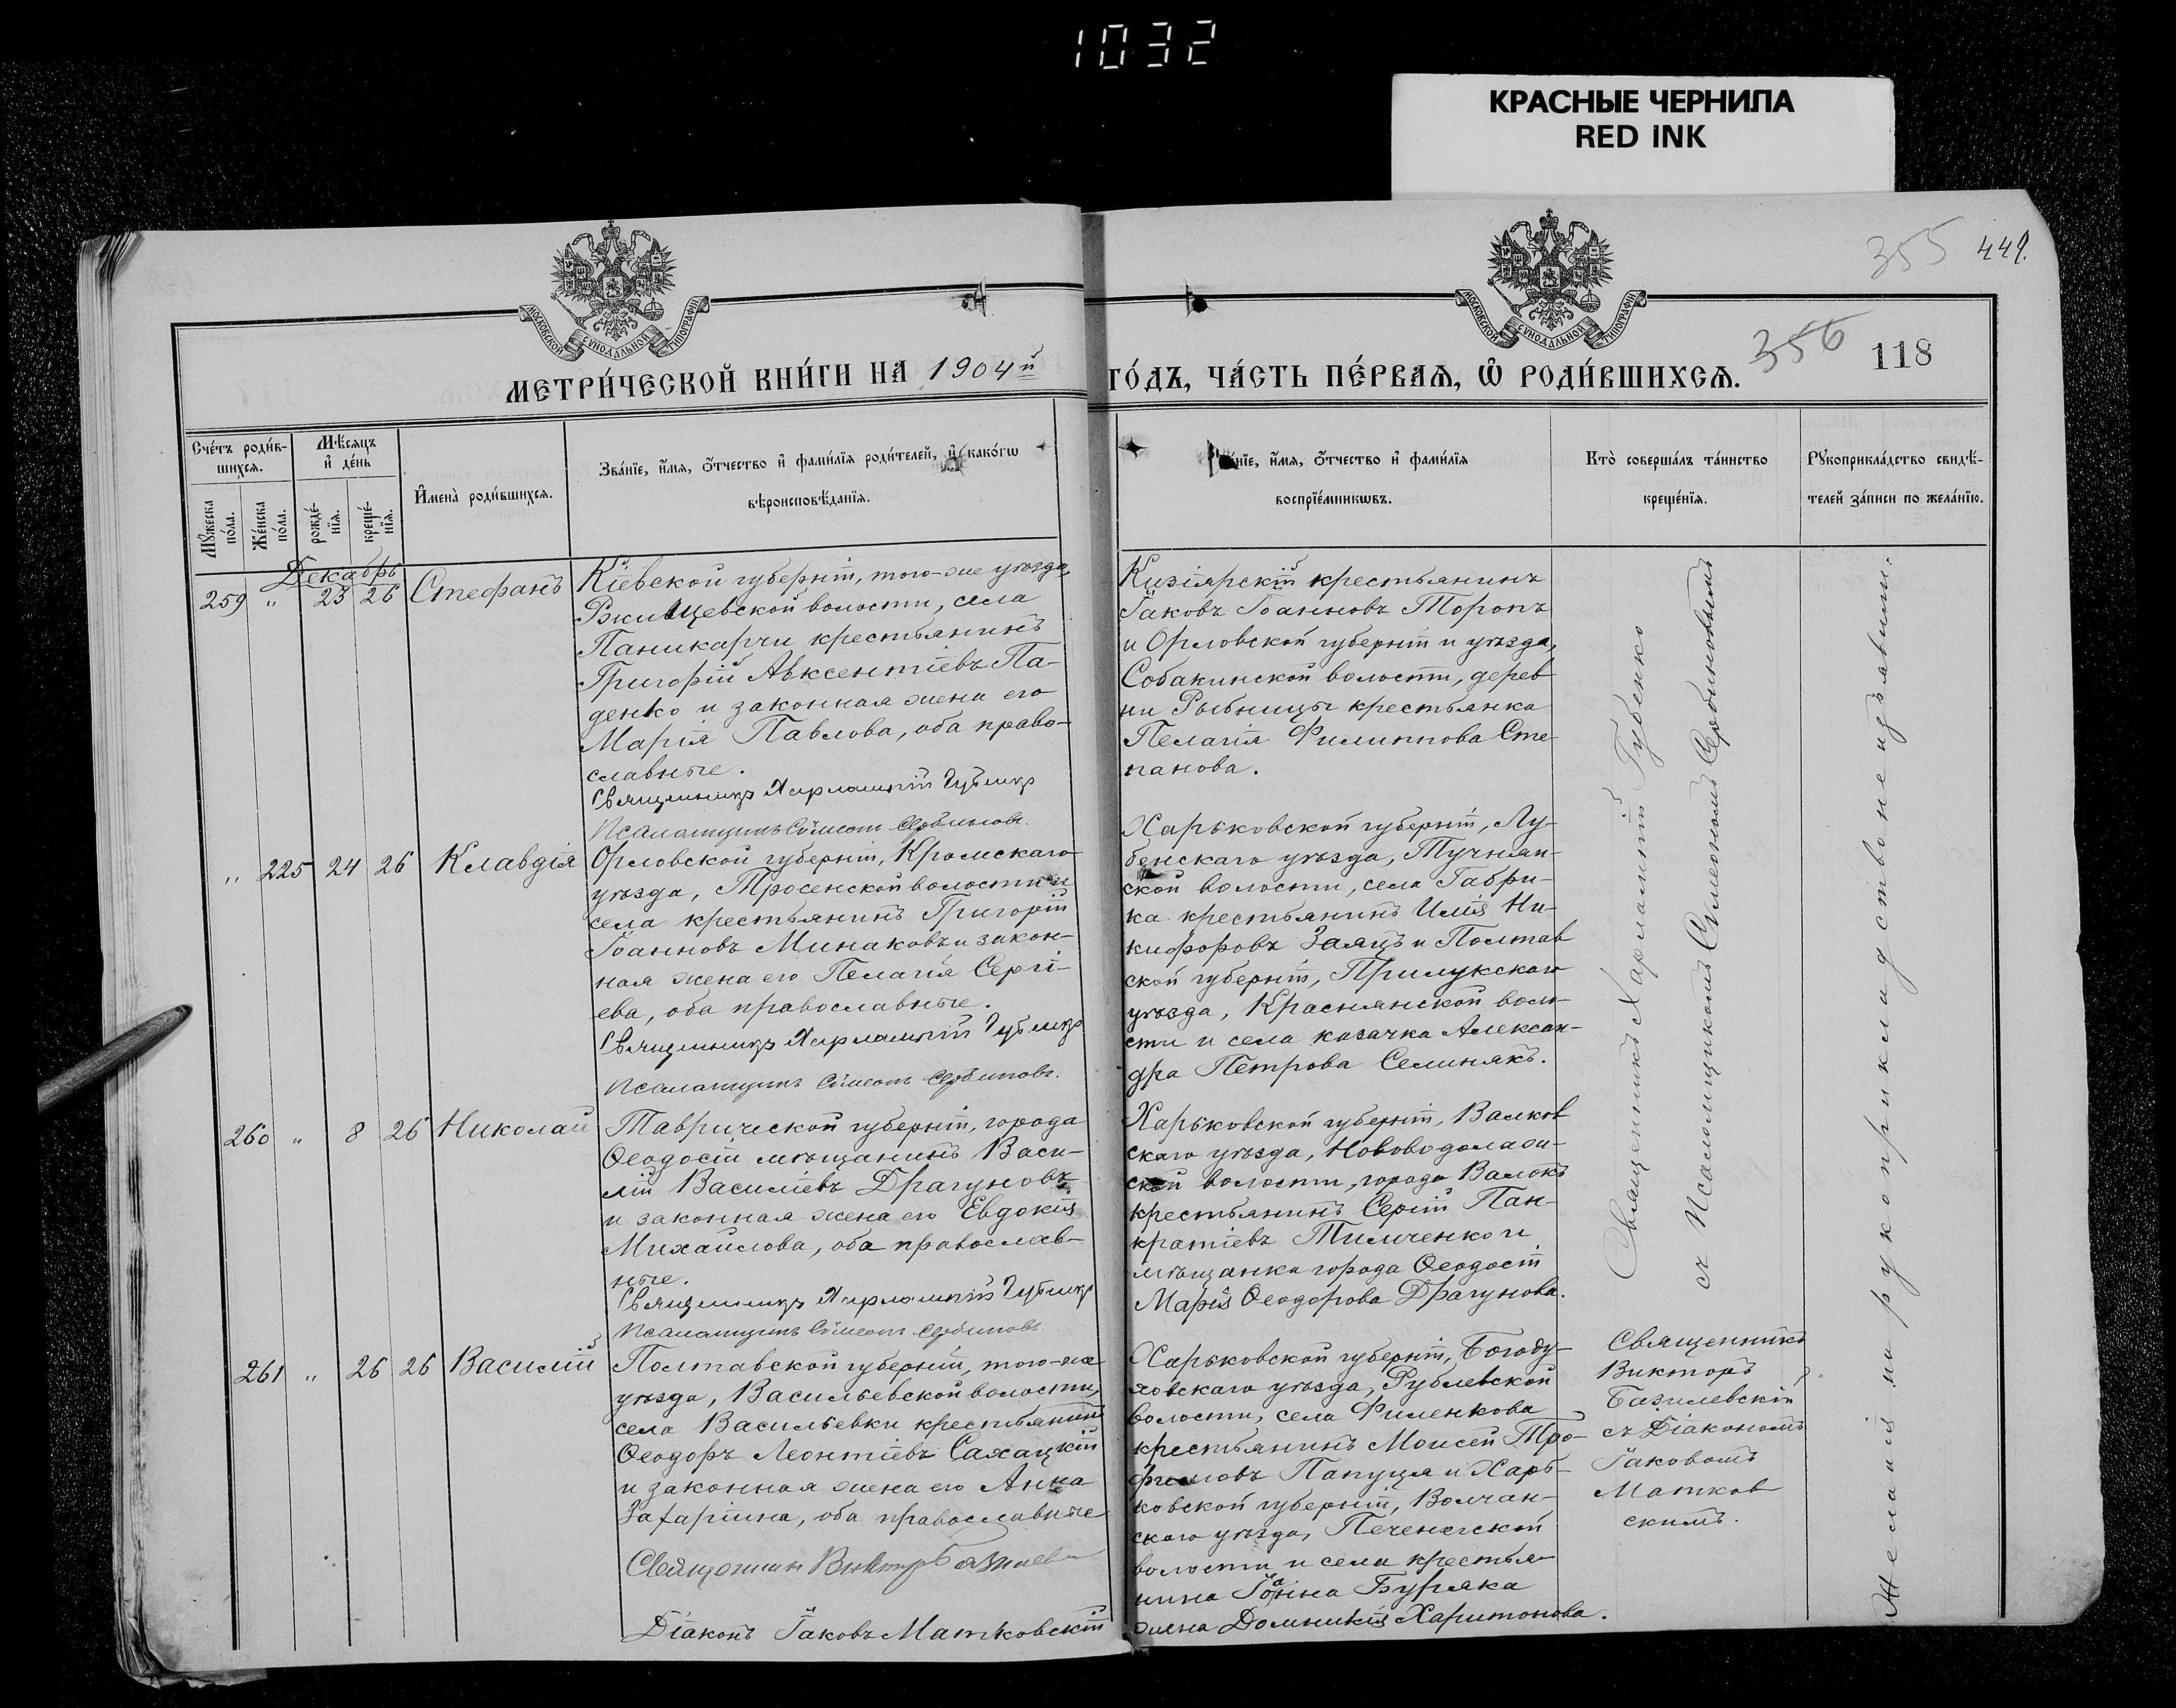 1032
КРАСНЫЕ ЧЕРНИЛА
RED INK
355 449.
356 118
МОСКОВСКОЙ СУНОДАЛЬНОЙ ТИПОГРАФІИ
МОСКОВСКОЙ СУНОДАЛЬНОЙ ТИПОГРАФІИ
МЕТРИ́ЧЕСКОЙ КНИ́ГИ НА 1904й ГО́ДЪ, ЧА́СТЬ ПЕ́РВАѦ, Ѡ РОДИ́ВШИХСѦ.
Сче́тъ роди́в-
шихся.
Мѣ́сяцъ
и де́нь
Му́жеска
по́ла.
Же́нска
по́ла.
рожде́-
нїя.
креще́-
нїя.
Имена̀ роди́вшихся.
Зва́нїе, и́мя, о́тчество и фами́лїя роди́телей, и како́гѡ
вѣроисповѣ́данїя.
и́мя, о́тчество и фами́лїя
воспрїе́мникѡвъ.
Кто̀ соверша́лъ та́инство
креще́нїя.
Рукоприкла́дство свидѣ́-
телей за́писи по жела́нїю.
Декабрь
259 " 23 26 Стефанъ
Кіевской губерніи, того-же уѣзда,
Ржищевской волости, села
Паникарчи крестьянинъ
Григорій Авксентіевъ Па-
денко и законная жена его
Марія Павлова, оба право-
славные.
Священникъ Харлампій Губенко
Псаломщикъ Сумеонъ Сербиновъ.
Кизіярскій крестьянинъ
Іаковъ Іоанновъ Торопъ
и Орловской губерніи и уѣзда,
Собакинской волости, дерев
ни Рыбницы крестьянка
Пелагія Филиппова Сте-
панова.
" 225 24 26 Клавдія
Орловской губерніи, Кромскаго
уѣзда, Тросенской волости и
села крестьянинъ Григорій
Іоанновъ Минаковъ и закон-
ная жена его Пелагія Сергі-
ева, оба православные.
Священникъ Харлампій Губенко
Псаломщикъ Сумеонъ Сербиновъ.
Харьковской губерніи, Лу-
бенскаго уѣзда, Тучнян-
ской волости, села Габри-
ка крестьянинъ Илія Ни-
кифоровъ Заяцъ и Полтав
ской губерніи, Прилукскаго
уѣзда, Краснянской воло-
сти и села казачка Алексан-
дра Петрова Селинякъ.
260 " 8 26 Николай
Таврической губерніи, города
Ѳеодосіи мѣщанинъ Васи-
лій Василіевъ Драгуновъ
и законная жена его Евдокія
Михаилова, оба православ-
ные.
Священникъ Харлампій Губенко
Псаломщикъ Сумеонъ Сербиновъ.
Харьковской губерніи, Валков
скаго уѣзда, Нововодолажи-
ской волости, города Валокъ
крестьянинъ Сергій Пан-
кратіевъ Тимченко и
мѣщанка города Ѳеодосіи
Марія Ѳеодорова Драгунова.
Священникъ Харлампій Губенко
съ Псаломщикомъ Сумеономъ Сербиновымъ
261 " 26 26 Василій
Полтавской губерніи, того-же
уѣзда, Васильевской волости,
села Васильевки крестьянинъ
Ѳеодоръ Леонтіевъ Сахацкій
и законная жена его Анна
Захаріина, оба православные
Священникъ Викторъ Базилев
Діаконъ Іаковъ Матковскій
Харьковской губерніи, Богоду-
ховскаго уѣзда, Рублевской
волости, села Филенкова
крестьянинъ Моисей Тро-
фимовъ Папуця и Харь-
ковской губерніи, Волчан-
скаго уѣзда, Печенегской
волости и села крестья-
нина Іоанна Буряка
жена Домникія Харитонова.
Священникъ
Викторъ
Базилевскій
съ Діакономъ
Іаковомъ
Матков
скимъ.
Желанія на рукоприкладство не изъявили.